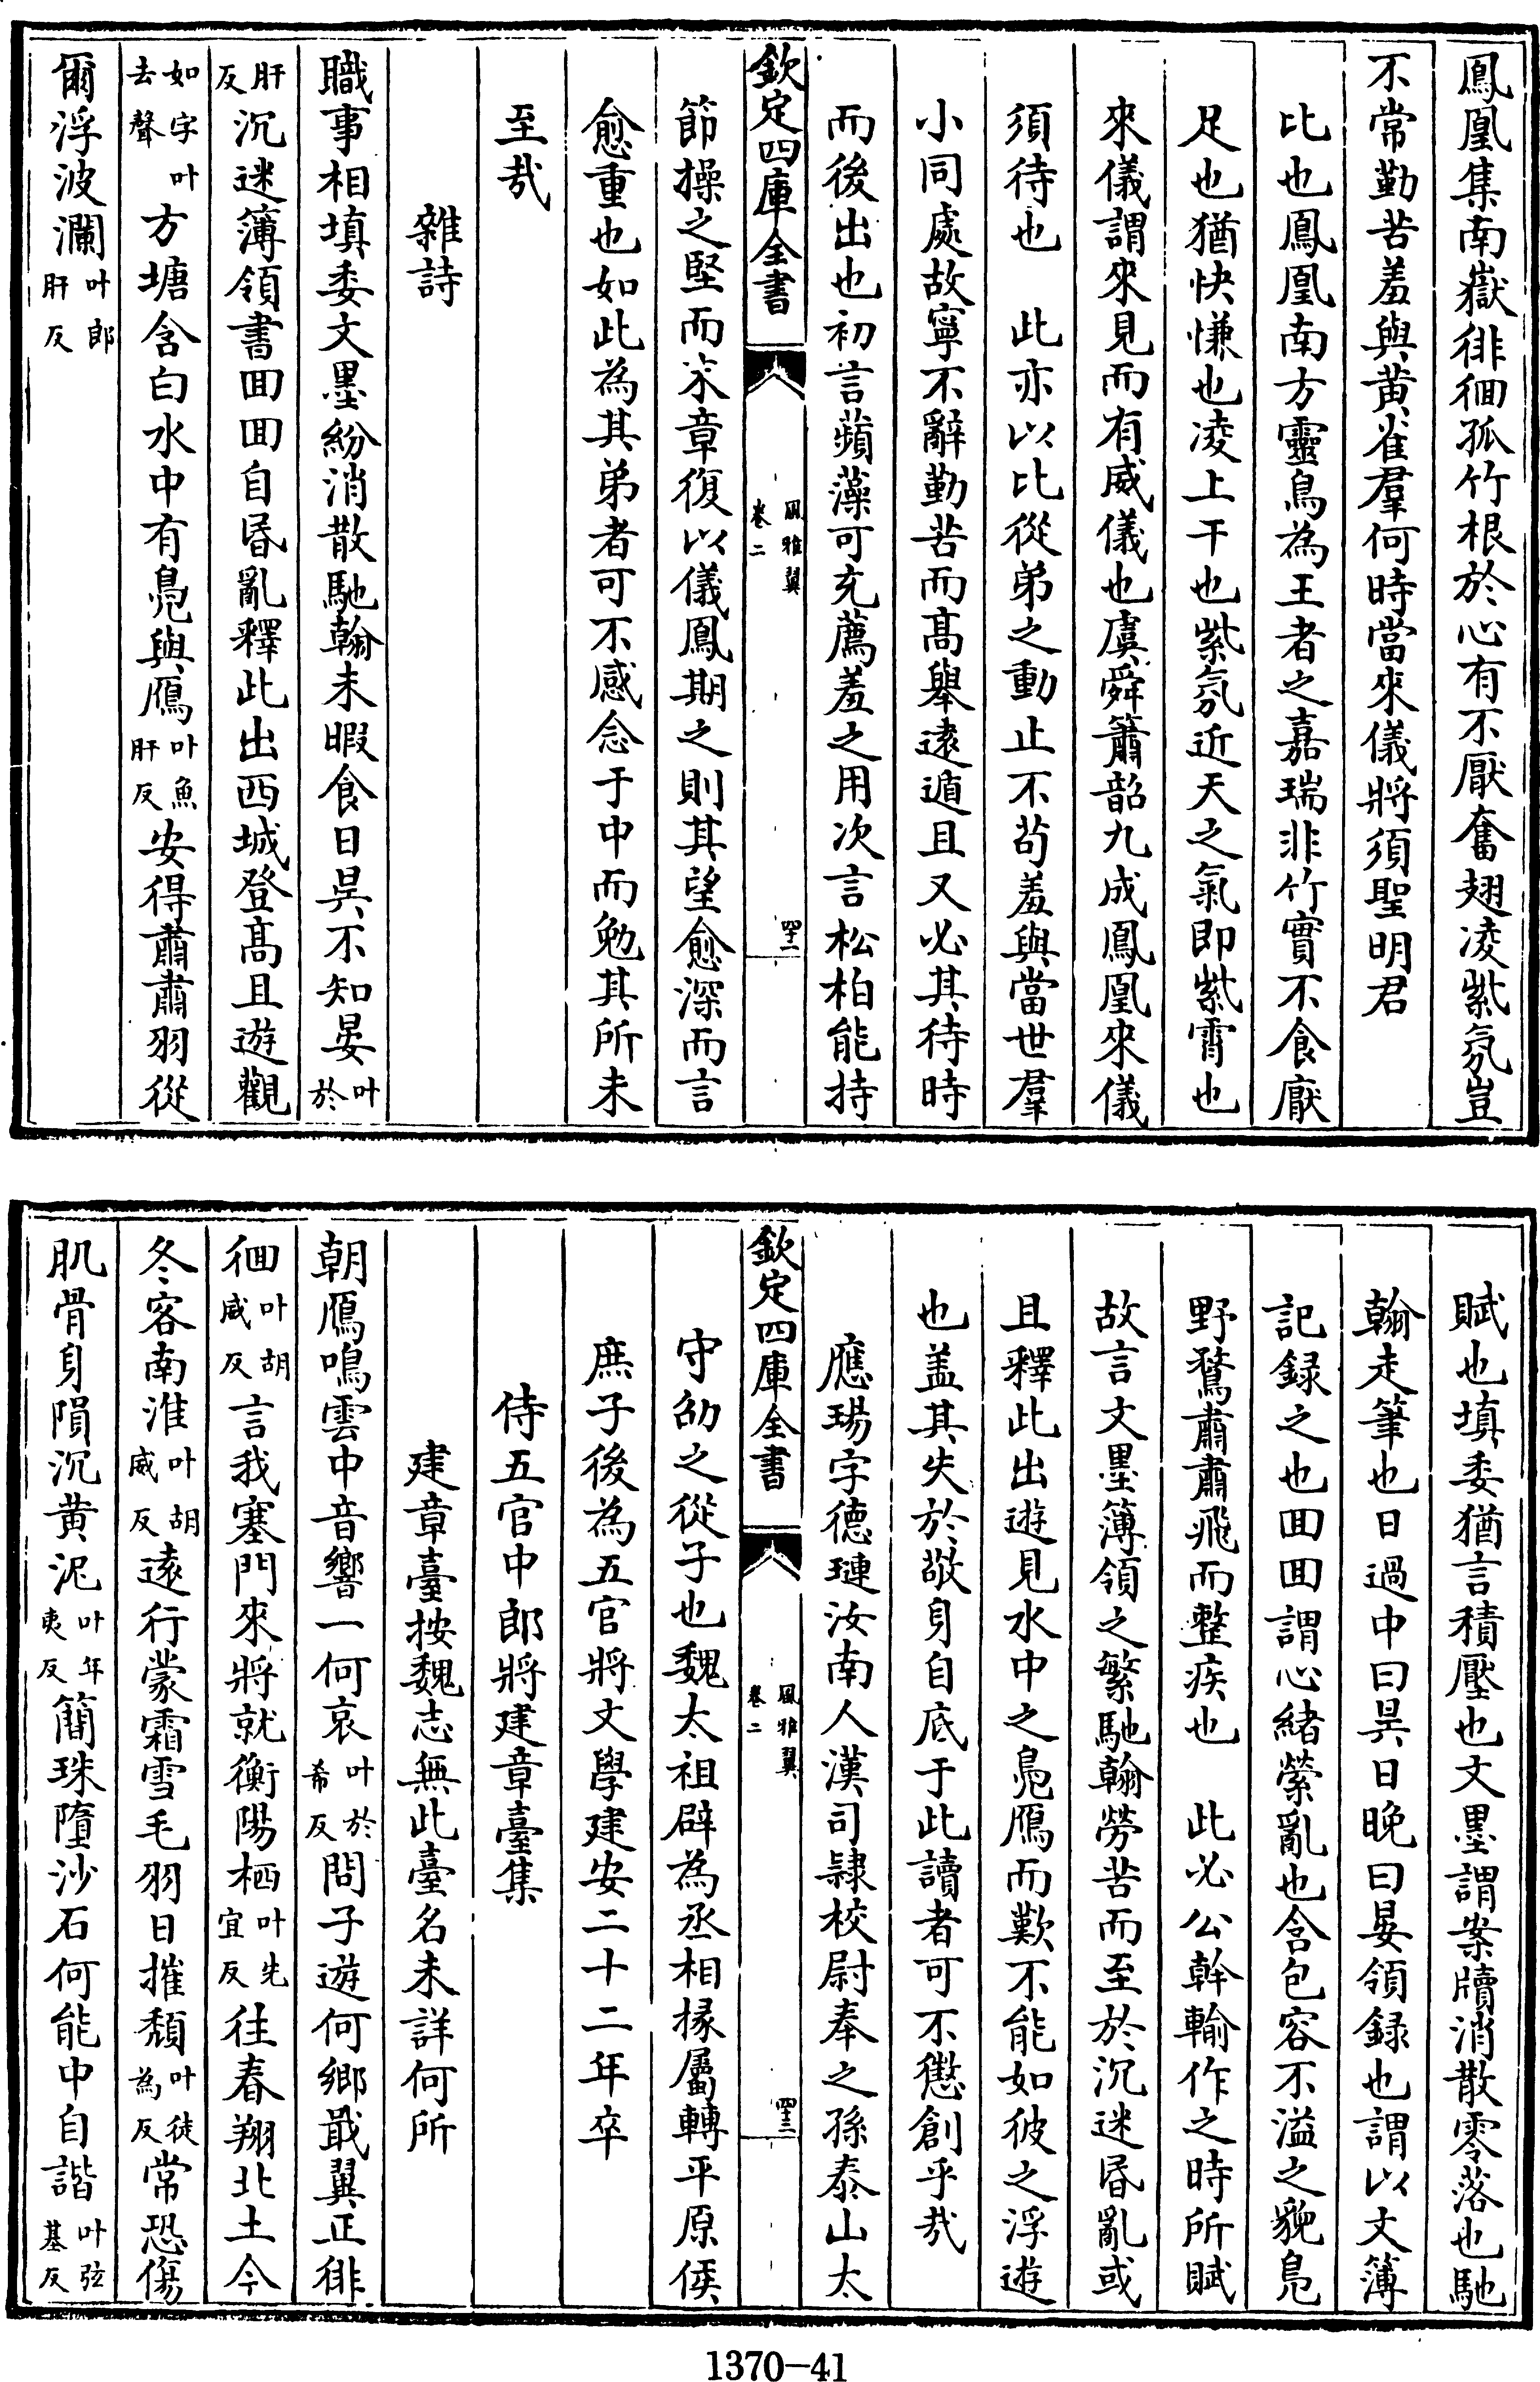 鳳凰集南嶽徘徊孤竹根於心有不厭奮翅凌紫氛豈
不常勤苦羞與黄雀羣何時當來儀將須聖明君
比也鳳凰南方靈鳥為王者之嘉瑞非竹實不食厭
足也猶快慊也凌上干也紫氛近天之氣即紫霄也
來儀謂來見而有威儀也虞舜簫韶九成鳳凰來儀
須待也　此亦以比從弟之動止不苟羞與當世羣
小同處故寧不辭勤苦而髙舉逺遁且又必其待時
而後出也初言蘋藻可充薦羞之用次言松柏能持
欽定四庫全書
風雅翼
卷二
四十二
節操之堅而末章復以儀鳳期之則其望愈深而言
愈重也如此為其弟者可不感念于中而勉其所未
至㢤
雜詩
職事相填委文墨紛消散馳翰未暇食日昃不知晏叶於
肝反沉迷簿領書囬囬自昏亂釋此出西城登髙且遊觀
如字叶去聲方塘含白水中有鳬與鴈叶魚肝反安得肅肅羽從
爾浮波瀾叶郎肝反
賦也填委猶言積壓也文墨謂案牘消散零落也馳
翰走筆也日過中曰昃日晚曰晏領録也謂以文簿
記録之也囬囬謂心緒縈亂也含包容不溢之貌鳬
野鶩肅肅飛而整疾也　此必公幹輸作之時所賦
故言文墨簿領之繁馳翰勞苦而至於沉迷昏亂或
且釋此出遊見水中之鳬鴈而歎不能如彼之浮遊
也盖其失於敬身自底于此讀者可不懲創乎㢤
應瑒字德璉汝南人漢司隷校尉奉之孫泰山太
欽定四庫全書
風雅翼
卷二
四十三
守劭之從子也魏太祖辟為丞相掾屬轉平原侯
庶子後為五官將文學建安二十二年卒
侍五官中郎將建章臺集
建章臺按魏志無此臺名未詳何所
朝鴈鳴雲中音響一何哀叶於希反問子遊何鄉戢翼正徘
徊叶胡威反言我塞門來將就衡陽栖叶先宜反往春翔北土今
冬客南淮叶胡威反逺行蒙霜雪毛羽日摧頽叶徒為反常恐傷
肌骨身隕沉黄泥叶年夷反簡珠墮沙石何能中自諧叶弦基反
1370-41